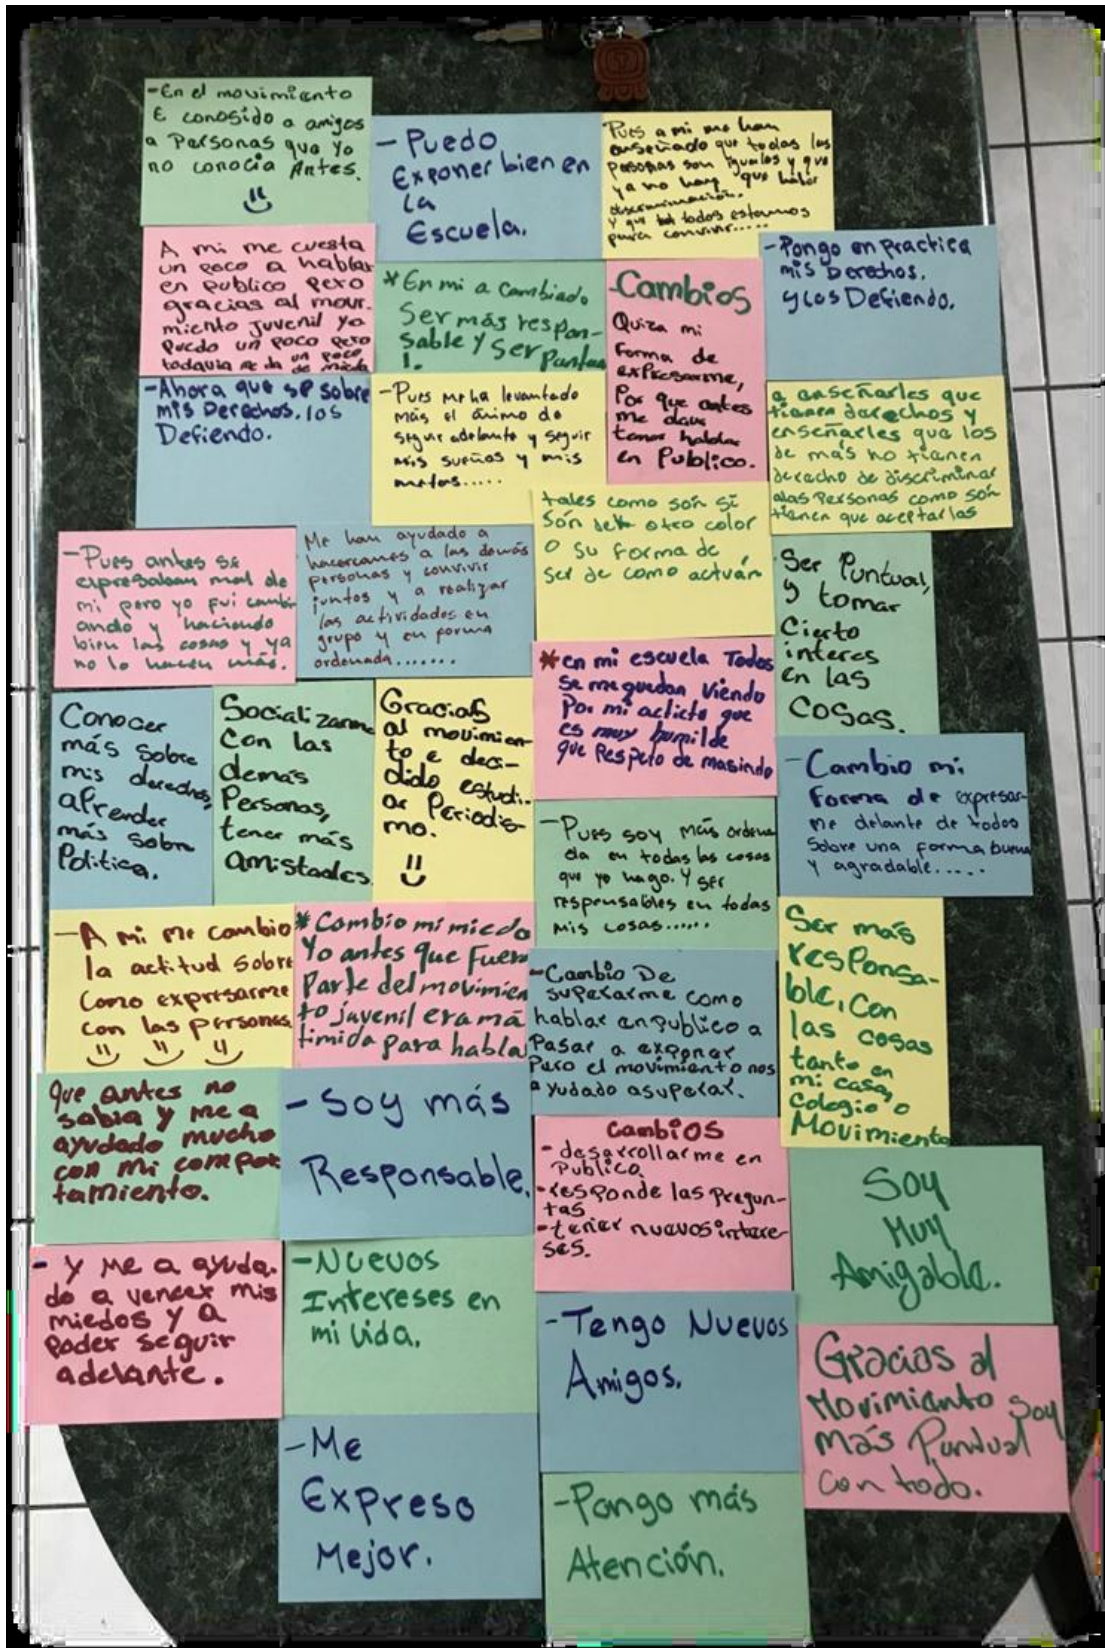 -En el movimiento
E conosido a amigos
a Personas que Yo
no conocia Antes.
- Puedo
Exponer bien en
La
Escuela.
Pues a mi me han
enseñado que todas las
personas son iguales y que
ya no hay que haber
discriminación.
Y que todos estamos
para convivir.....
A mi me cuesta
un poco a hablar
en publico pero
gracias al movi-
miento juvenil Yo
Puedo un poco pero
todavia me da un poco
de miedo
*En mi a cambiado
Ser más respon-
sable y ser Puntua
l.
Cambios
Quiza mi
forma de
expresarme,
Por que antes
me daba
temor hablar
en Publico.
-Pongo en practica
mis Derechos.
y los Defiendo.
-Ahora que se sobre
mis Derechos. los
Defiendo.
-Pues me ha levantado
más el ánimo de
seguir adelante y seguir
mis sueños y mis
metas.....
a enseñarles que
tienen derechos y
enseñarles que los
de más no tienen
derecho de discriminar
alas Personas como son
tienen que aceptarlas
tales como són si
són de otro color
o su forma de
ser de como actuán
-Pues antes se
expresaban mal de
mi pero yo fui cambi
ando y haciendo
bien las cosas y ya
no lo hacen más.
Me han ayudado a
hacercarnos a las demás
personas y convivir
juntos y a realizar
las actividades en
grupo y en forma
ordenada.......
Ser Puntual,
y tomar
Cierto
interes
en las
Cosas.
*en mi escuela Todos
se me quedan Viendo
Por mi actictu que
es muy humilde
que Respeto de masindo
Conocer
más sobre
mis derechos,
aprender
más sobre
Politica.
Socializarme
Con las
demás
Personas,
tener más
amistades.
Gracias
al movimien-
to e deci-
dido estudi-
ar Periodis-
mo.
-Cambio mi
Forma de expresar-
me delante de todos
Sobre una forma buena
y agradable.....
-Pues soy más ordena
da en todas las cosas
que yo hago. Y ser
responsables en todas
mis cosas......
-A mi me cambio
la actitud sobre
como expresarme
con las personas
*Cambio mi miedo
Yo antes que Fuera
Parte del movimien
to juvenil era má
timida para habla
-Cambio De
superarme como
hablar en publico a
Pasar a exponer
Pero el movimiento nos
ayudado asuperar.
Ser más
responsa-
ble, con
las cosas
tanto en
mi casa,
colegio o
Movimiento
que antes no
sabia y me a
ayudado mucho
con mi compor
tamiento.
-Soy más
Responsable.
Cambios
-desarrollarme en
Publico.
-responde las Pregun-
tas
-tener nuevos intere-
ses.
Soy
Muy
Amigable.
- Y Me a ayuda.
do a vencer mis
miedos y a
poder seguir
adelante.
-Nuevos
Intereses en
mi vida.
-Tengo Nuevos
Amigos.
Gracias al
Movimiento Soy
más Puntual
con todo.
-Me
Expreso
Mejor.
-Pongo más
Atención.